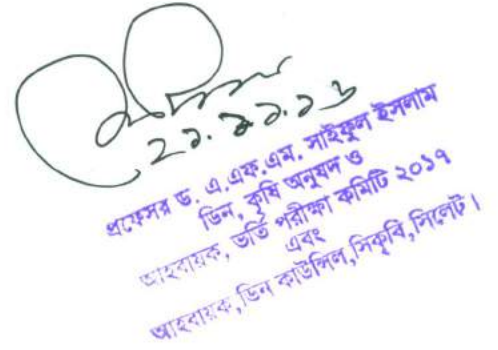 ২১.১.১৬
প্রফেসর ড. এ.এফ.এম. সাইফুল ইসলাম
ডিন, কৃষি অনুষদ ও
আহবায়ক, ভর্তি পরীক্ষা কমিটি ২০১৭
এবং
আহবায়ক,ডিন কাউন্সিল,সিকৃবি,সিলেট।